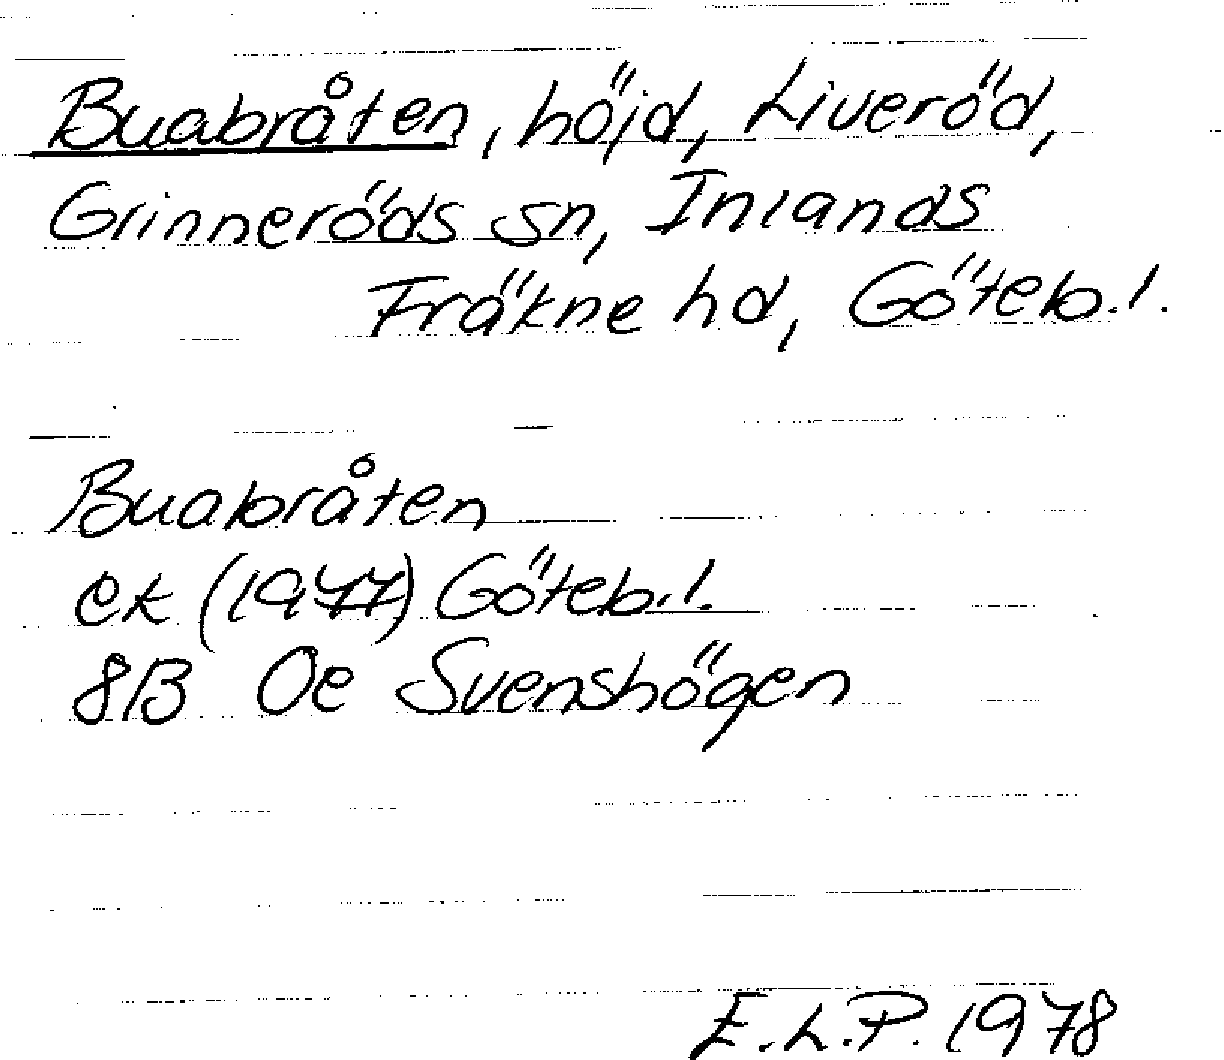 Buabråten, höjd, Liveröd,
Grinneröds sn, Inlands
Fräkne hd, Göteb.l.
Buabråten
ek (1977) Göteb.l.
8B 0e Svenshögen
E.L.P. 1978